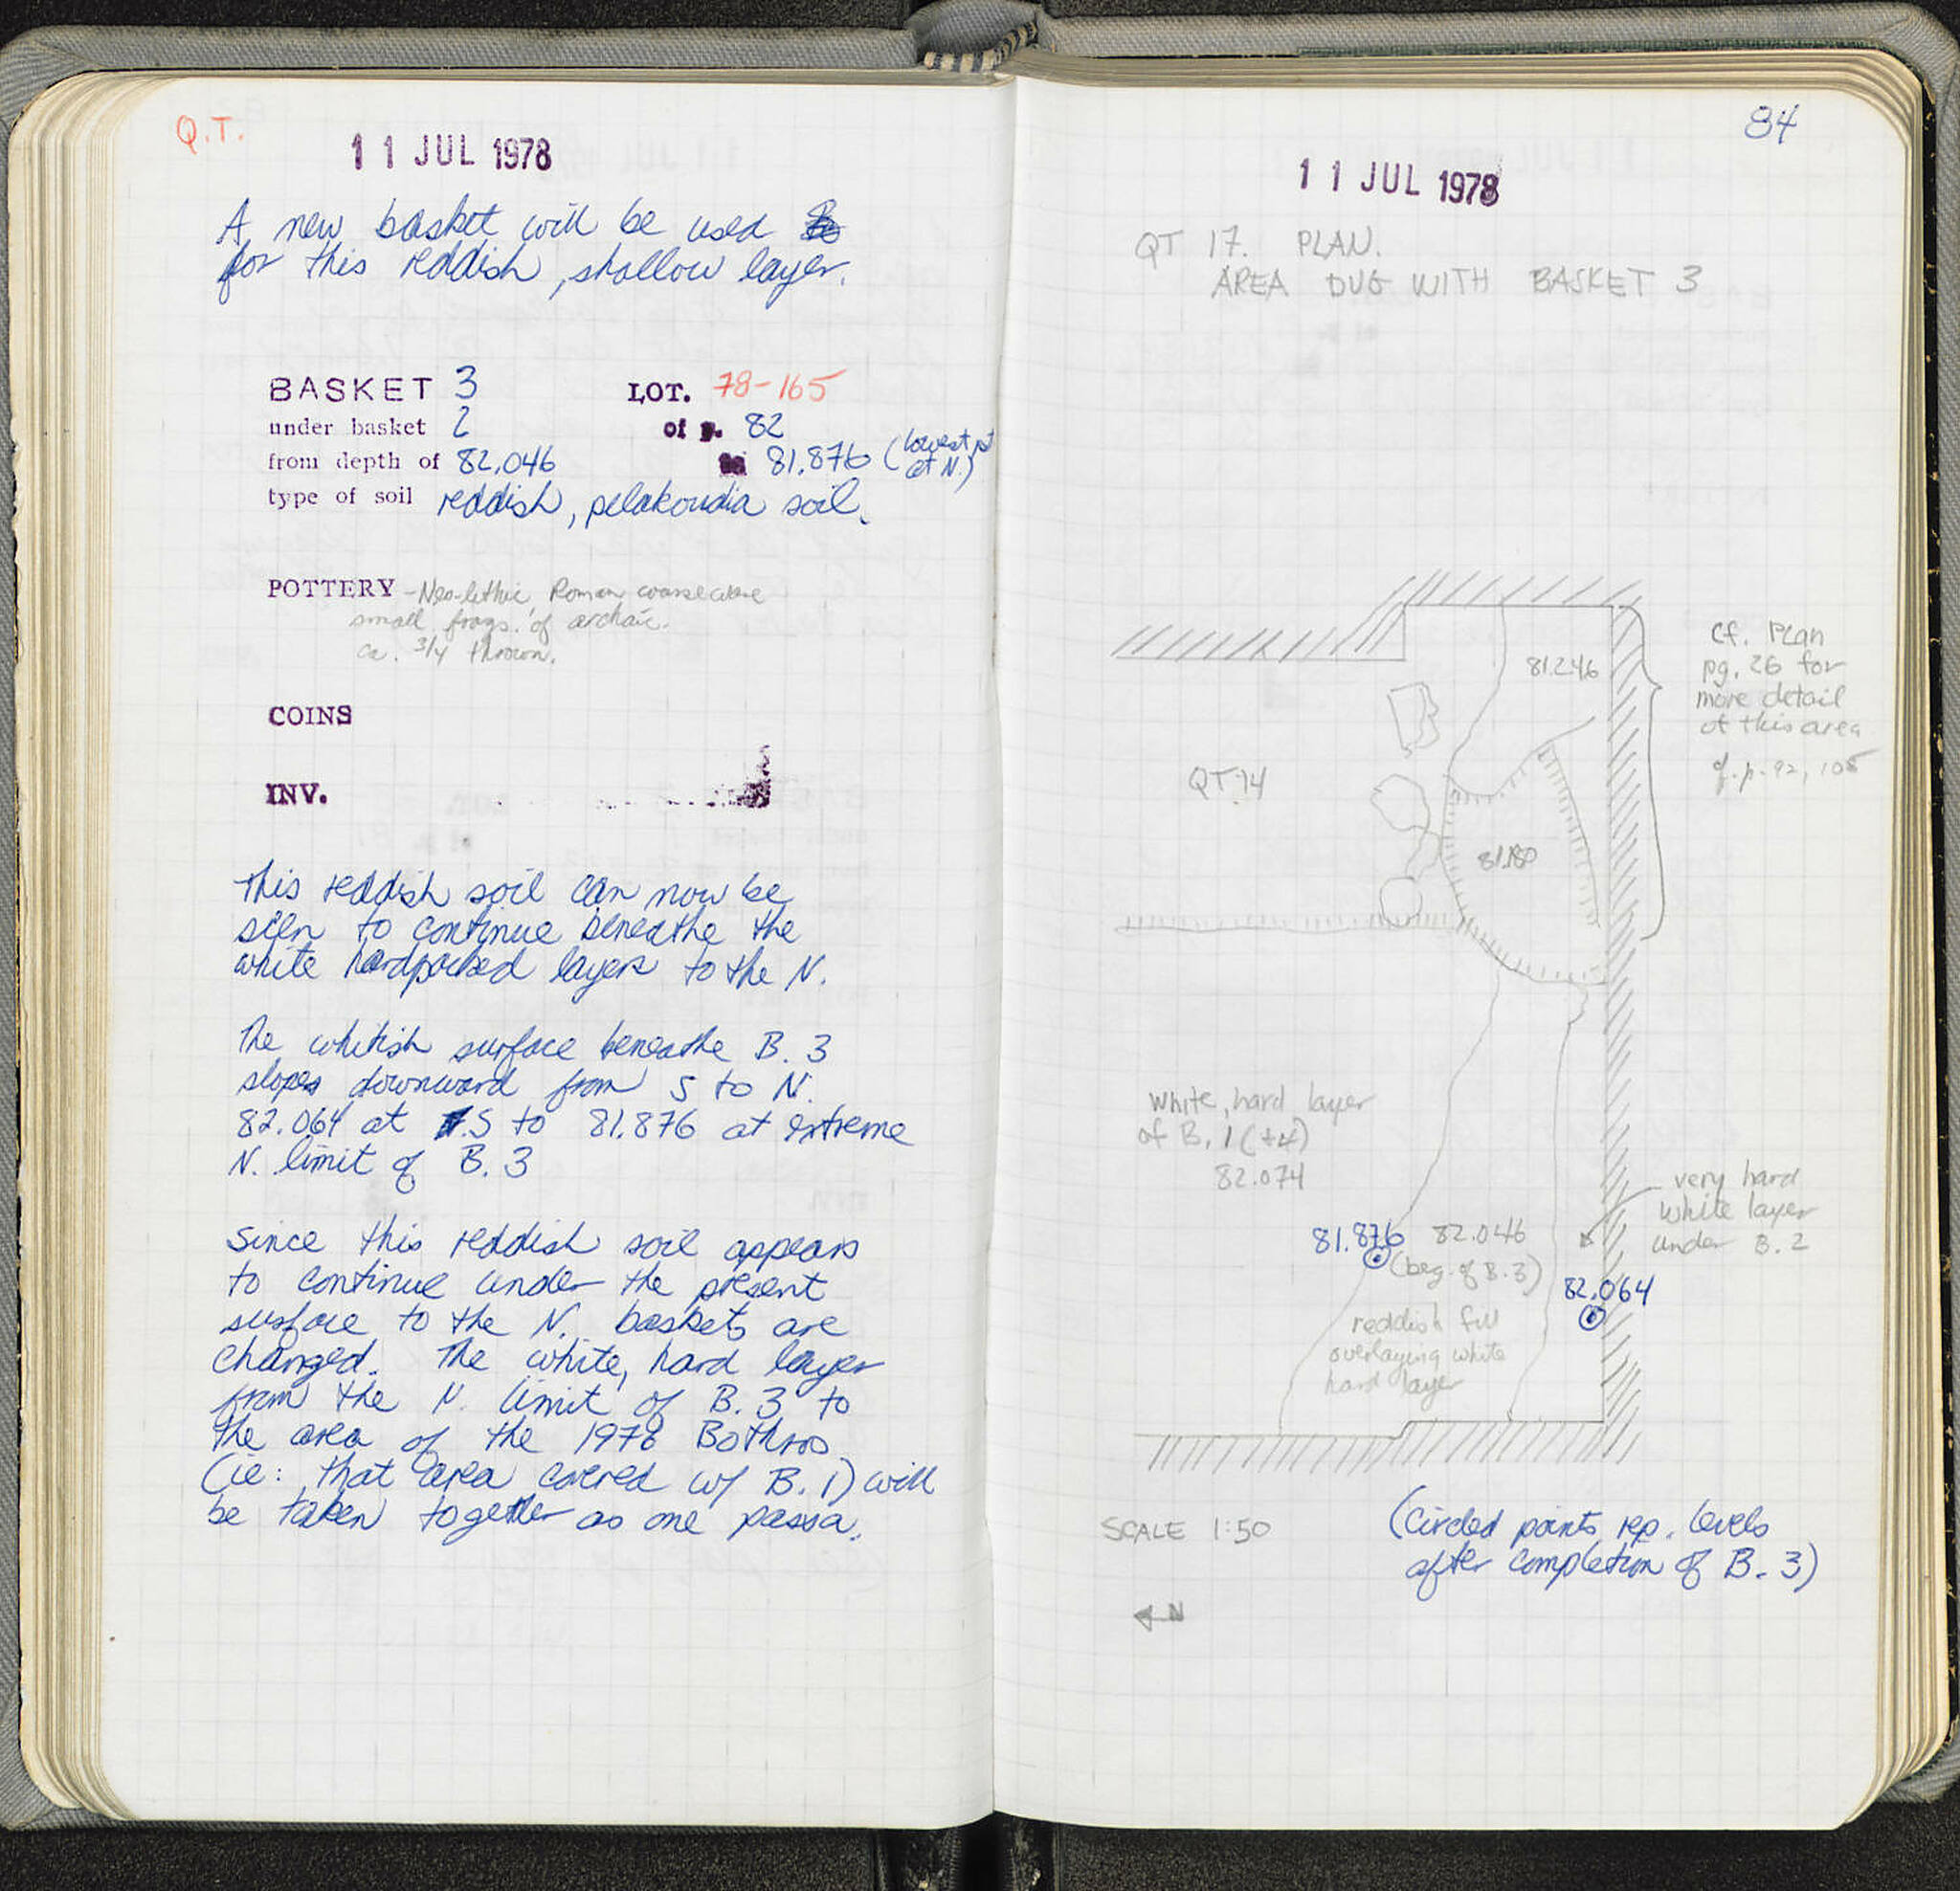 Q.T.
11 JUL 1978
A new basket will be used
for this reddish, shallow layer.
BASKET 3 LOT. 78-165
under basket 2 of p. 82
from depth of 82.046 81.876 (lowest pt
at N.)
type of soil reddish, pelakoudia soil.
POTTERY - Neo-lithic, Roman coarseware
small frags. of archaic.
ca. 3/4 thrown.
COINS
INV.
This reddish soil can now be
seen to continue beneathe the
white hardpacked layers to the N.
The whitish surface beneathe B. 3
slopes downward from S to N.
82.064 at S to 81.876 at extreme
N. limit of B. 3
Since this reddish soil appears
to continue under the present
surface to the N. baskets are
changed. The white, hard layer
from the N. limit of B. 3 to
the area of the 1976 Bothros
(ie: that area covered w/ B. 1) will
be taken together as one passa.
84
11 JUL 1978
QT 17. PLAN.
AREA DUG WITH BASKET 3
81.246
cf. Plan
pg. 26 for
more detail
of this area
cf. p. 92, 105
QT 14
81.180
White, hard layer
of B. 1 (+4)
82.074
very hard
white layer
under B. 2
81.876 82.046
(beg. of B. 3)
82.064
reddish fill
overlaying white
hard layer
SCALE 1:50
(Circled points rep. levels
after completion of B. 3)
N